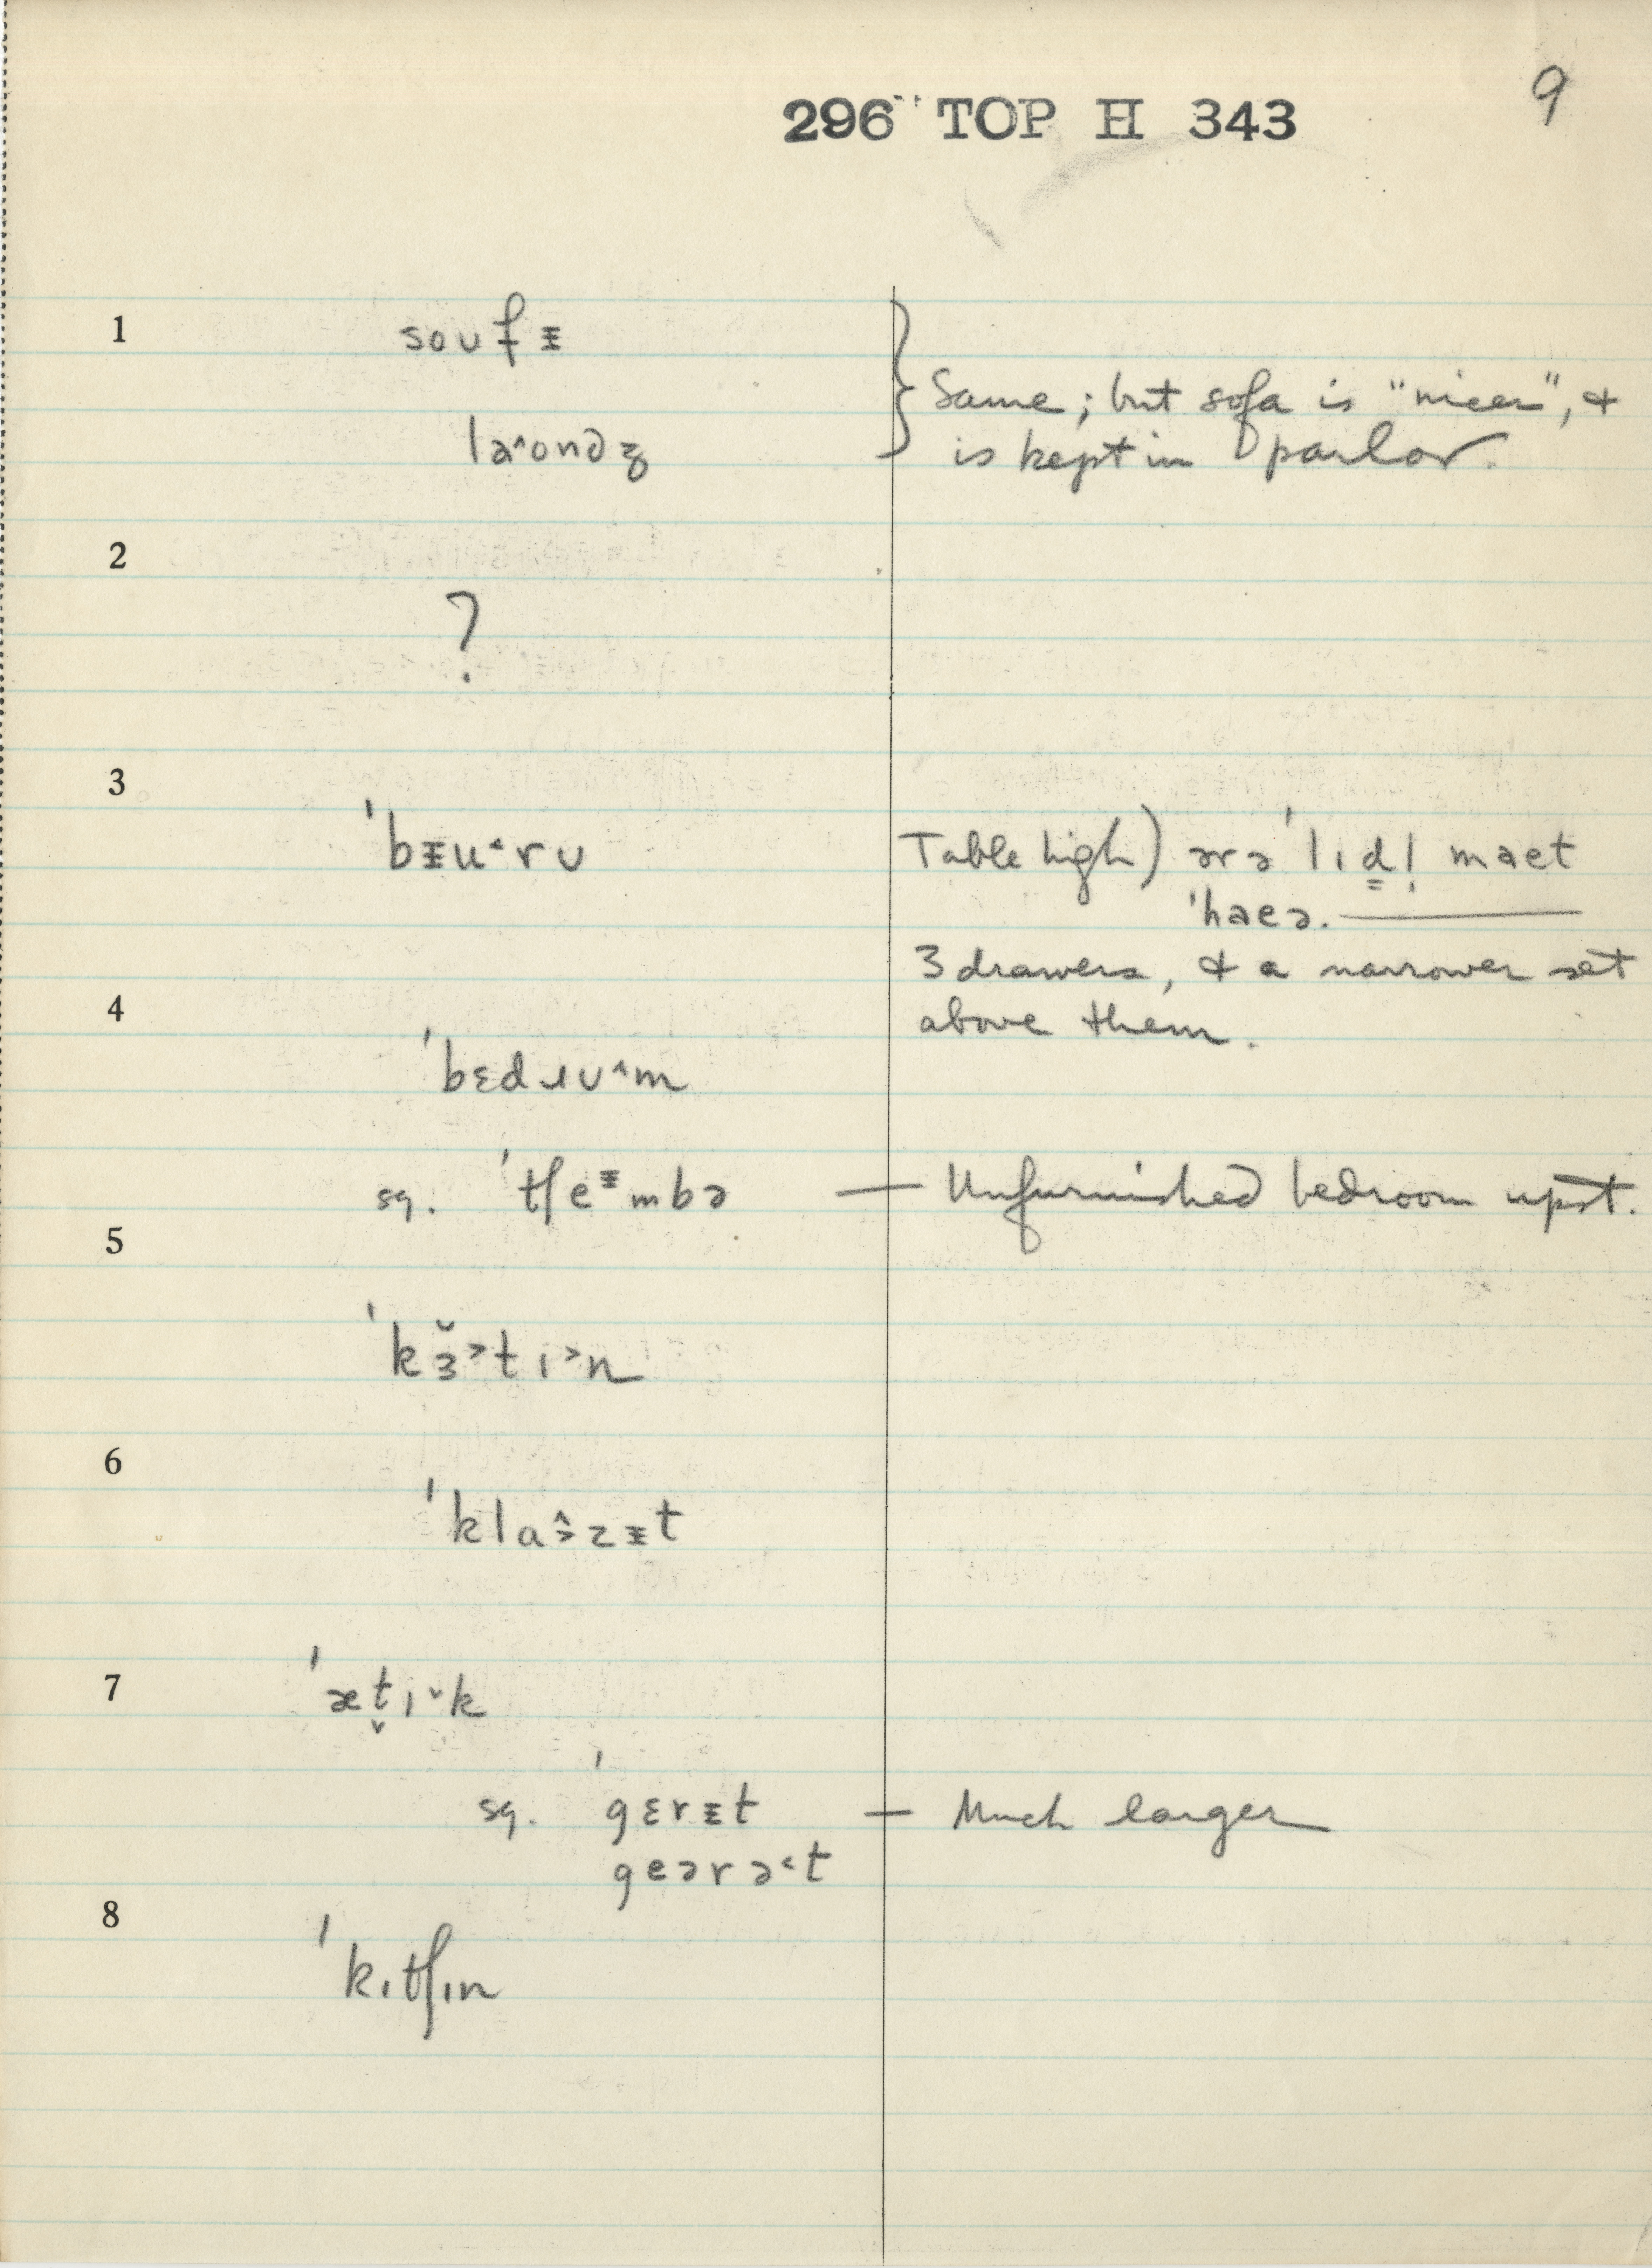 9
296 TOP H 343
1 soᴜfᵻ
laˆᴏndʒ
Same; but sofa is "nicer", &
is kept in parlor.
2
?
3
ˈbᵻu˂rᴜ
Table high) ərə ˈlɪd! maet
ˈhaeə.
3 drawers, & a narrower set
above them.
4
ˈbɛdɹᴜ^m
sq. ˈtʃeᵻmbə — Unfurnished bedroom upst.
5
ˈkɜ̆˃tɪ˃n
6
ˈklɑ˄˃zᵻt
7
ˈæt̬ɪ˅k
sq. ˈgɛrᵻt — Much larger
geərə˂t
8
ˈkɪtʃɪn